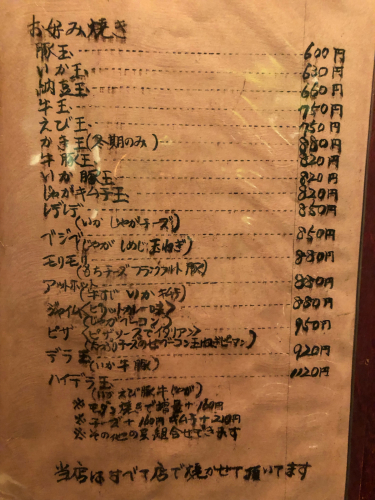 お好み焼き
豚玉 600円
いか玉 630円
納豆玉 660円
牛玉 750円
えび玉 750円
かき玉(冬期のみ) 880円
牛豚玉 820円
いか豚玉 820円
じゃがキムチ玉 820円
レゲレゲ 850円
(いか じゃが チーズ)
ベジベ 850円
(じゃが しめじ 玉ねぎ)
モリモリ 880円
(もち チーズ フランクフルト 豚)
アットホット 880円
(牛すじ いか キムチ)
880円
(じゃが ベーコン)
ピザ 950円
デラ玉 920円
(いか 牛 豚)
ハイデラ玉 1120円
(いか えび 豚 牛)
※ 焼きで増量+160円
※チーズ+160円 キムチ+210円
※その他の具組合せできます
当店はすべて店で焼かせて頂いてます